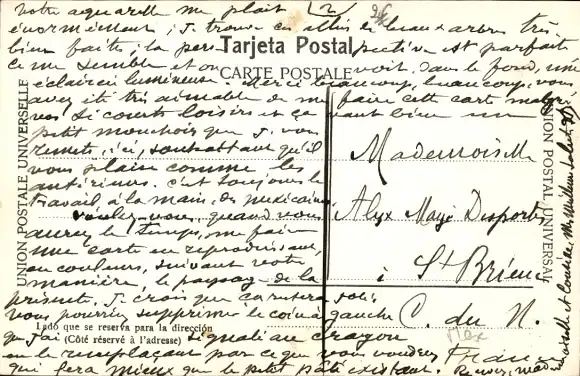 votre aquarelle me plait
énormément ; j. trouve ces allées et beaux arbres très
bien faits ; la perspective est parfaite
Tarjeta Postal
ce me semble et on voit, dans le fond, une
CARTE POSTALE
éclaircie lumineuse. Merci beaucoup, beaucoup, vous
avez été très aimable de me faire cette carte malgré
vos si courts loisirs et ça vaut bien un
petit mouchoir que j. vous
remets, ici, souhaitant qu'il
vous plaise comme les
antérieurs. C'est toujours le
travail, à la main, des mexicaines
voulez-vous, quand vous
aurez le temps, me faire
une carte en reproduisant,
en couleurs, suivant votre
manière, le paysage de la
présente. J. crois que ça sera joli
vous pourriez supprimer le coin à gauche
Lado que se reserva para la dirección
que j'ai signalé au crayon
(Côté réservé à l'adresse)
en le remplaçant par ce que vous voudrez
qui fera mieux que le petit pâté existant.
UNION POSTALE UNIVERSELLE
UNION POSTAL UNIVERSAL
Mademoiselle
Alyx Desportes
à St Brieuc
C. du N.
Mex
France